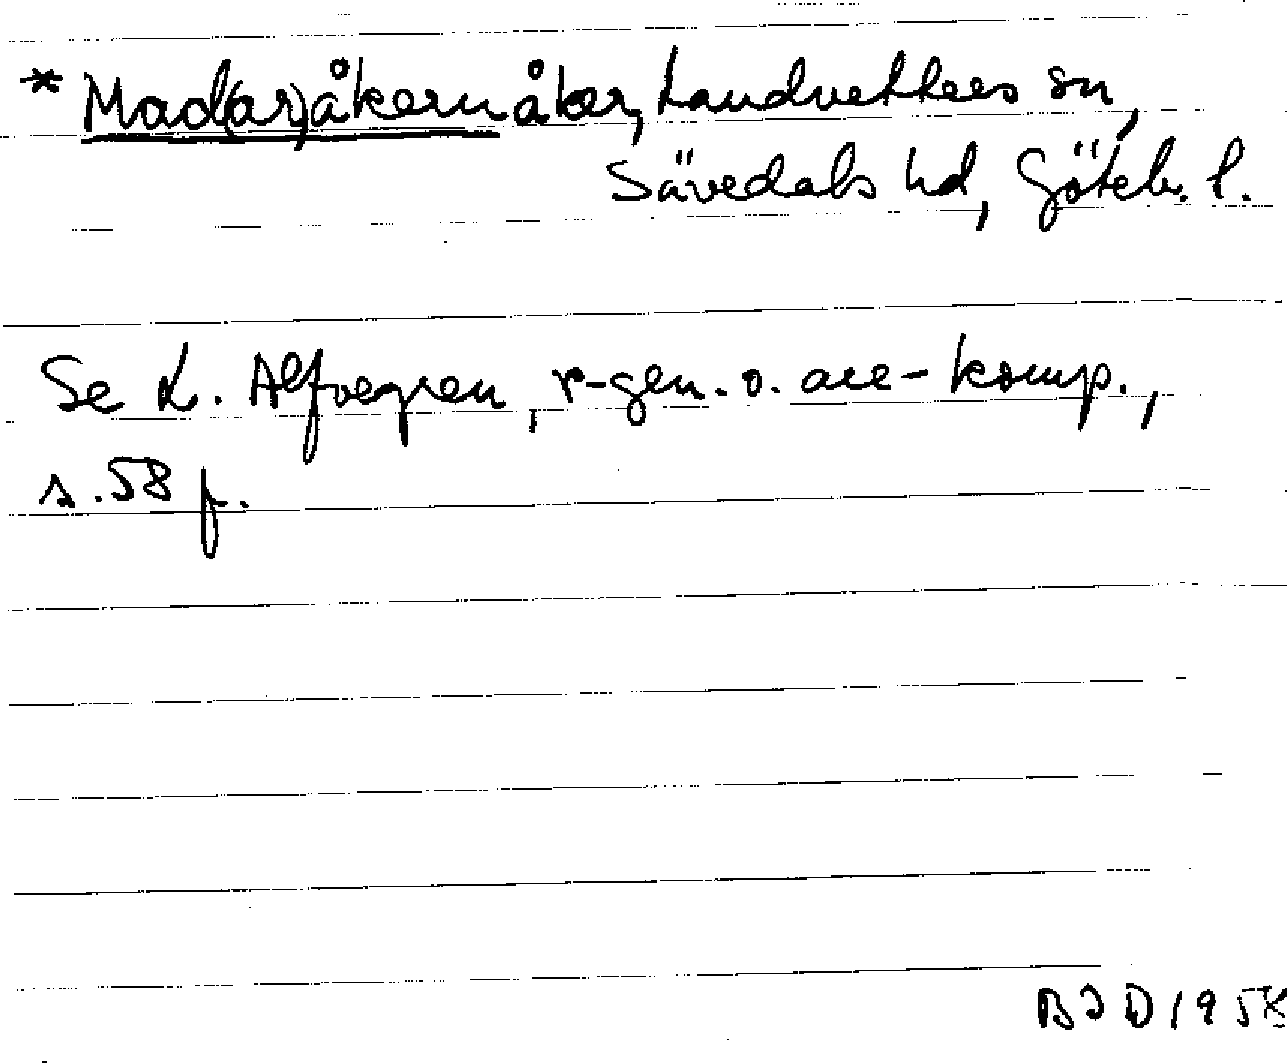 * Mad(ar)åkern åker, Landvetters sn,
Sävedals hd, Göteb. l.
Se L. Alfvegren, r-gen. o. are-komp.,
s. 58 f.
BJD 1958